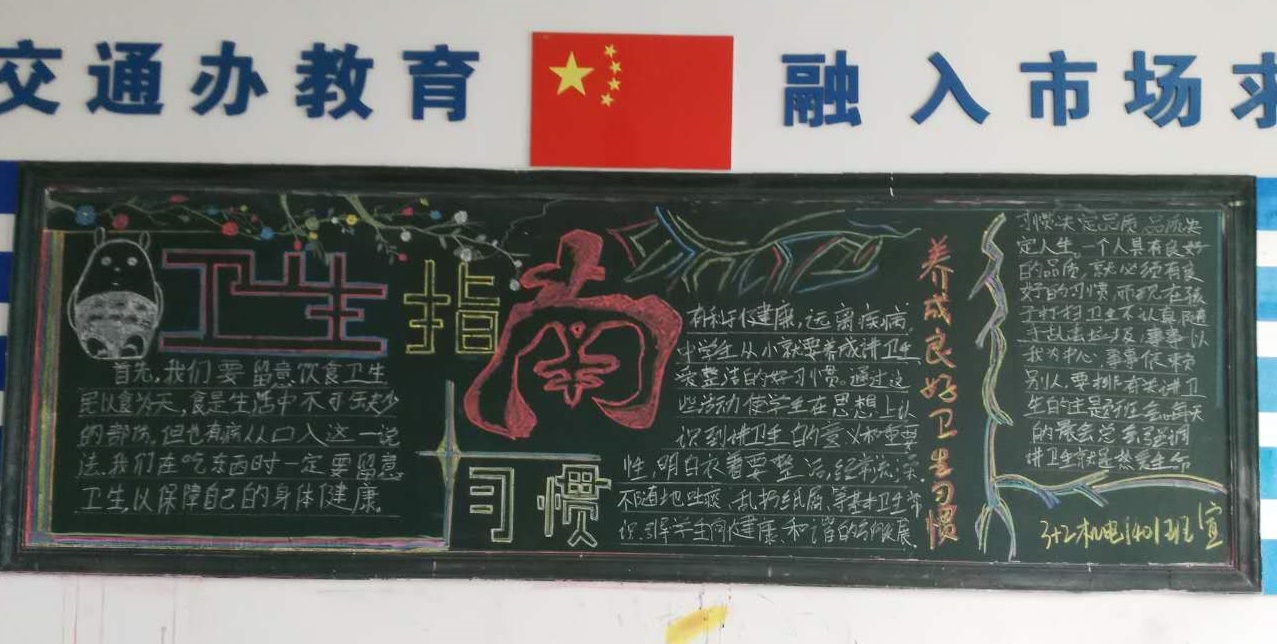 交通办教育
融入市场求
卫生指南
首先,我们要留意饮食卫生
民以食为天,食是生活中不可缺少
的部份,但也有病从口入这一说
法,我们在吃东西时一定要留意
卫生,以保障自己的身体健康.
习惯
有利于健康,远离疾病,
中学生从小就要养成讲卫生
爱整洁的好习惯。通过这
些活动使学生在思想上认
识到讲卫生的意义和重要
性,明白衣着要整洁,经常洗澡.
不随地吐痰、乱扔纸屑,等基本卫生常
识.引导学生向健康.和谐的方向发展.
养成良好卫生习惯
习惯决定品质,品质决
定人生。一个人具有良好
的品质,就必须有良
好的习惯,而现在孩
子打扫卫生不认真,随
手乱丢垃圾,事事以
我为中心,事事依赖
别人.要排有关讲卫
生的主题班会,每天
的晨会总会强调
讲卫生就是热爱生命
3+2机电1401班 宣